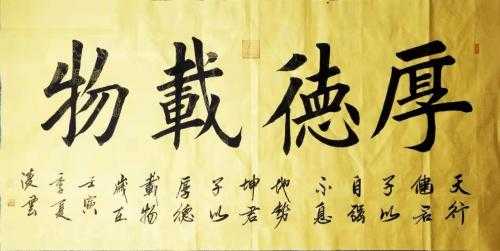 厚德載物
天行
健君
子以
自强
不息
地势
坤君
子以
厚德
載物
歲在
壬寅
季夏
凌雲